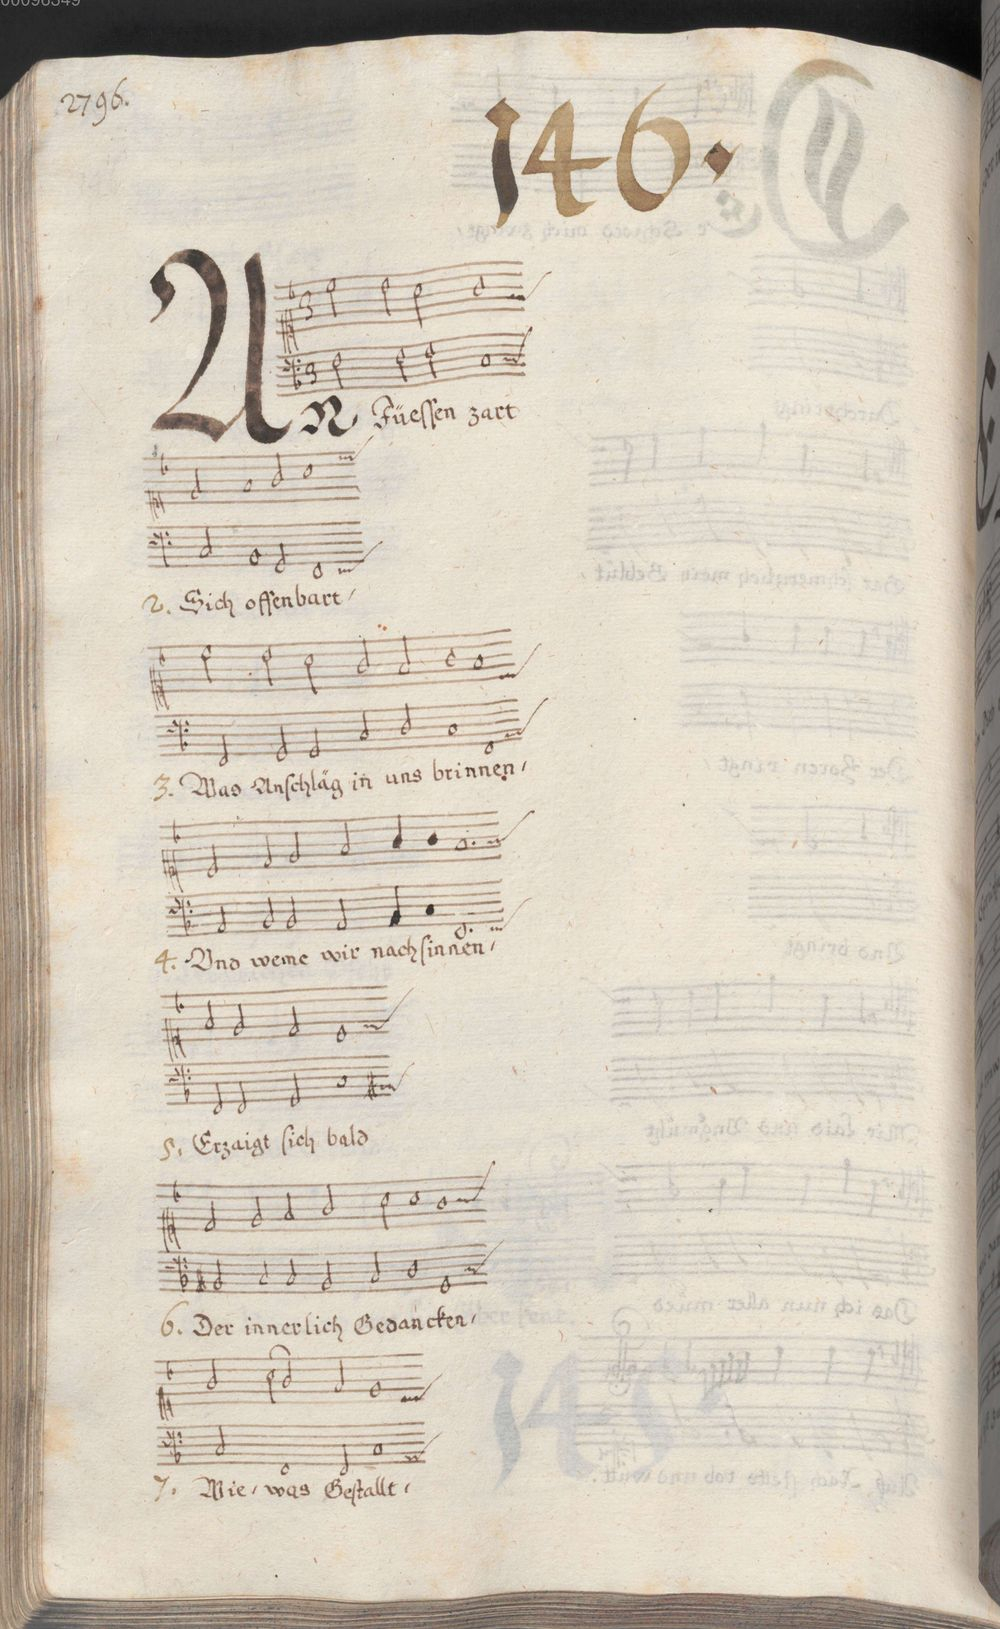 00096349
2796.
146.
An Füessen zart
2. Sich offenbart /
3. Was Anschläg in uns brinnen /
4. Vnd weme wir nachsinnen /
5. Erzaigt sich bald
6. Der innerlich Gedancken /
7. Wie / was Gestallt /